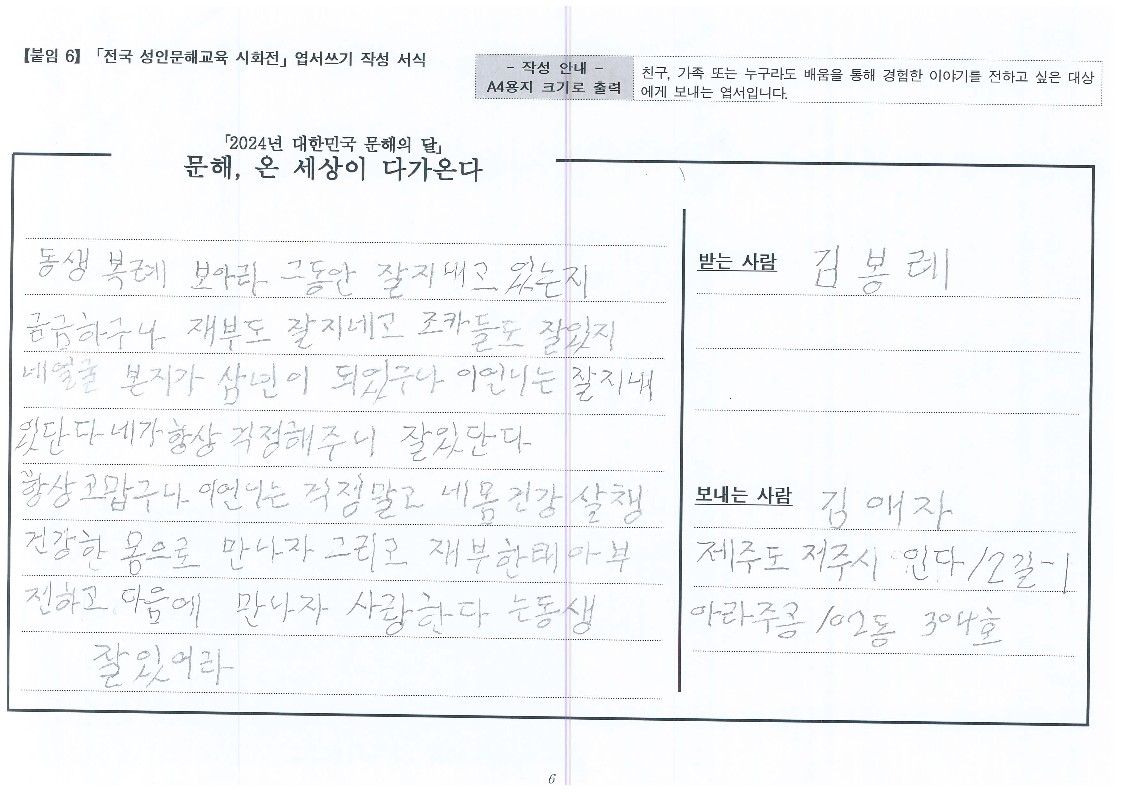 【붙임 6】 「전국 성인문해교육 시화전」 엽서쓰기 작성 서식
- 작성 안내 -
A4용지 크기로 출력
친구, 가족 또는 누구라도 배움을 통해 경험한 이야기를 전하고 싶은 대상
에게 보내는 엽서입니다.
「2024년 대한민국 문해의 달」
문해, 온 세상이 다가온다
동생 복례 보아라 그동안 잘지내고 있는지
궁금하구나 재부도 잘지네고 조카들도 잘있지
네얼굴 본지가 삼년이 되었구나 이언니는 잘지내
있단다 네가 항상 걱정해주니 잘있단다
항상고맙구나 이언니는 걱정말고 네몸건강 살챙
건강한 몸으로 만나자 그리고 재부한태 아부
전하고 다음에 만나자 사랑한다 는동생
잘있어라
받는 사람 김봉례
보내는 사람 김애자
제주도 제주시 인다12길-1
아라주공 102동 304호
6